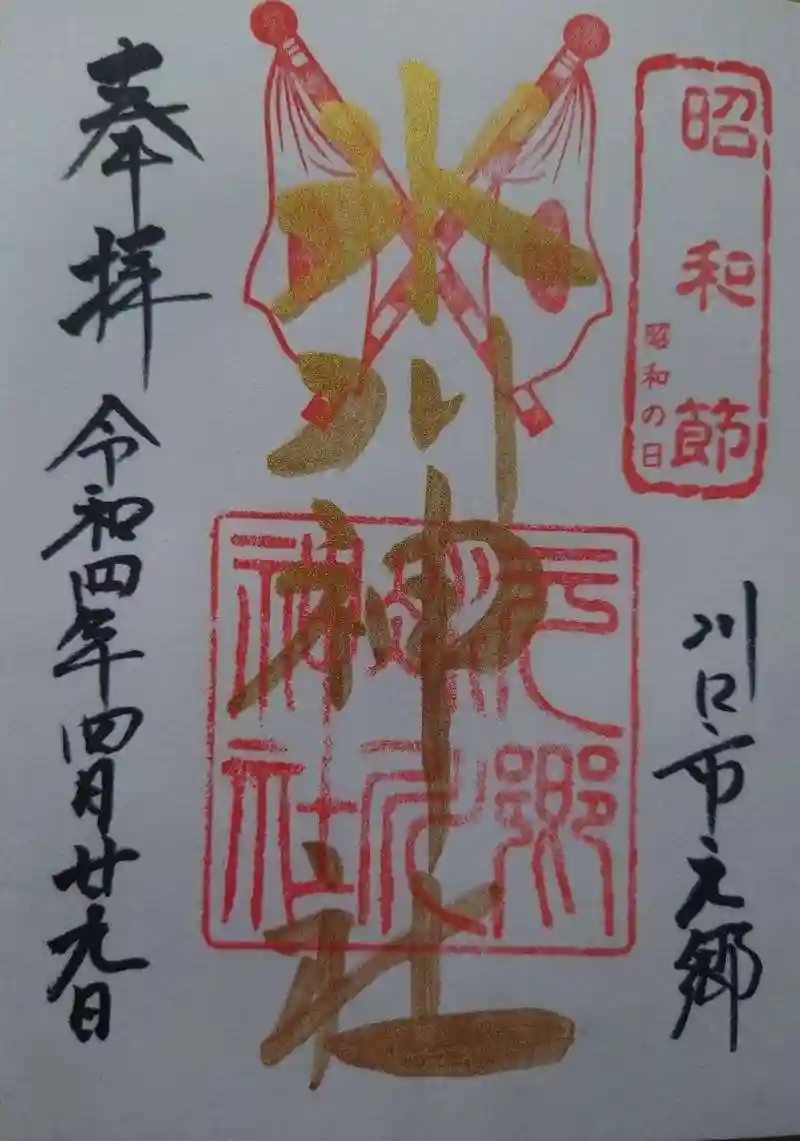 昭和節
昭和の日
川口市元郷
氷川神社
元郷
氷川
神社
奉拝
令和四年四月廿九日